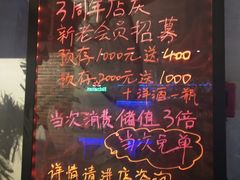 3周年店庆
新老会员招募
预存1000元送400
预存2000元送1000
十洋酒一瓶
当次消费储值3倍
当次免单
详情请进店咨询